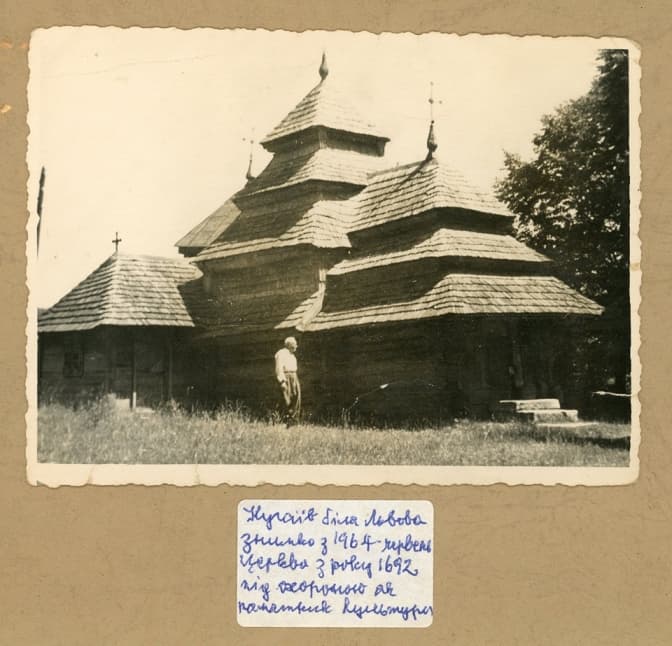 Кугаїв біля Львова
знимко з 1964 - червень
Церква з року 1692
під охороною як
памятник культури